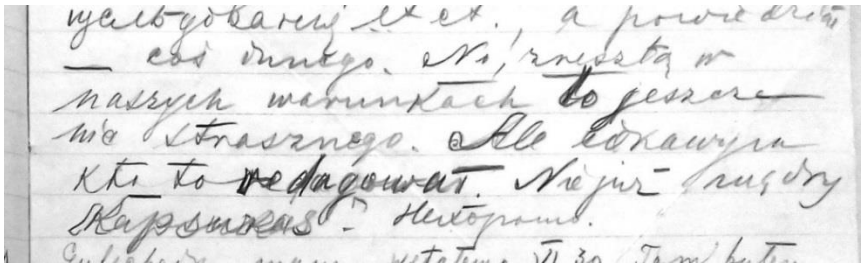 et ct., a powiedział
— coś innego. No, zresztą w
naszych warunkach to jeszcze
nic strasznego. Ale ciekawym
kto to redagował. Nie już mądry
Kapsukas? Нехорошо.
wstałem VI 30 Tam